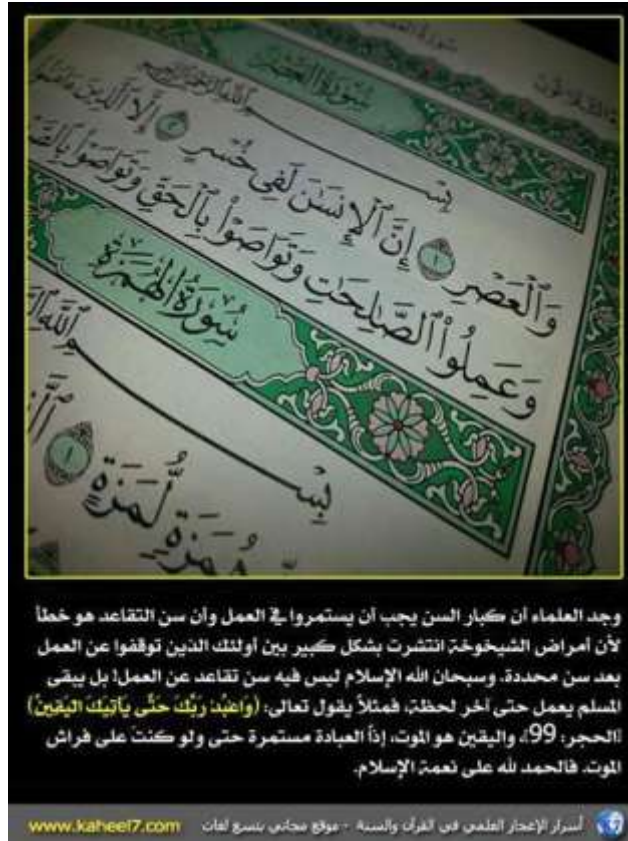 سُورَةُ العَصْرِ
بِسْمِ اللَّهِ الرَّحْمَٰنِ الرَّحِيمِ
وَٱلْعَصْرِ ١ إِنَّ ٱلْإِنسَٰنَ لَفِى خُسْرٍ ٢ إِلَّا ٱلَّذِينَ
وَعَمِلُوا۟ ٱلصَّٰلِحَٰتِ وَتَوَاصَوْا۟ بِٱلْحَقِّ وَتَوَاصَوْا۟
سُورَةُ الهُمَزَةِ
بِسْمِ ٱللَّهِ
هُمَزَةٍ لُّمَزَةٍ ١
وجد العلماء أن كبار السن يجب أن يستمروا في العمل وأن سن التقاعد هو خطأ
لأن أمراض الشيخوخة انتشرت بشكل كبير بين أولئك الذين توقفوا عن العمل
بعد سن محددة. وسبحان الله الإسلام ليس فيه سن تقاعد عن العمل! بل يبقى
المسلم يعمل حتى آخر لحظة، فمثلاً يقول تعالى: (وَاعْبُدْ رَبَّكَ حَتَّى يَأْتِيَكَ الْيَقِينُ)
[الحجر: 99]، واليقين هو الموت، إذاً العبادة مستمرة حتى ولو كنتَ على فراش
الموت. فالحمد لله على نعمة الإسلام.
أسرار الإعجاز العلمي في القرآن والسنة - موقع مجاني بتسع لغات www.kaheel7.com